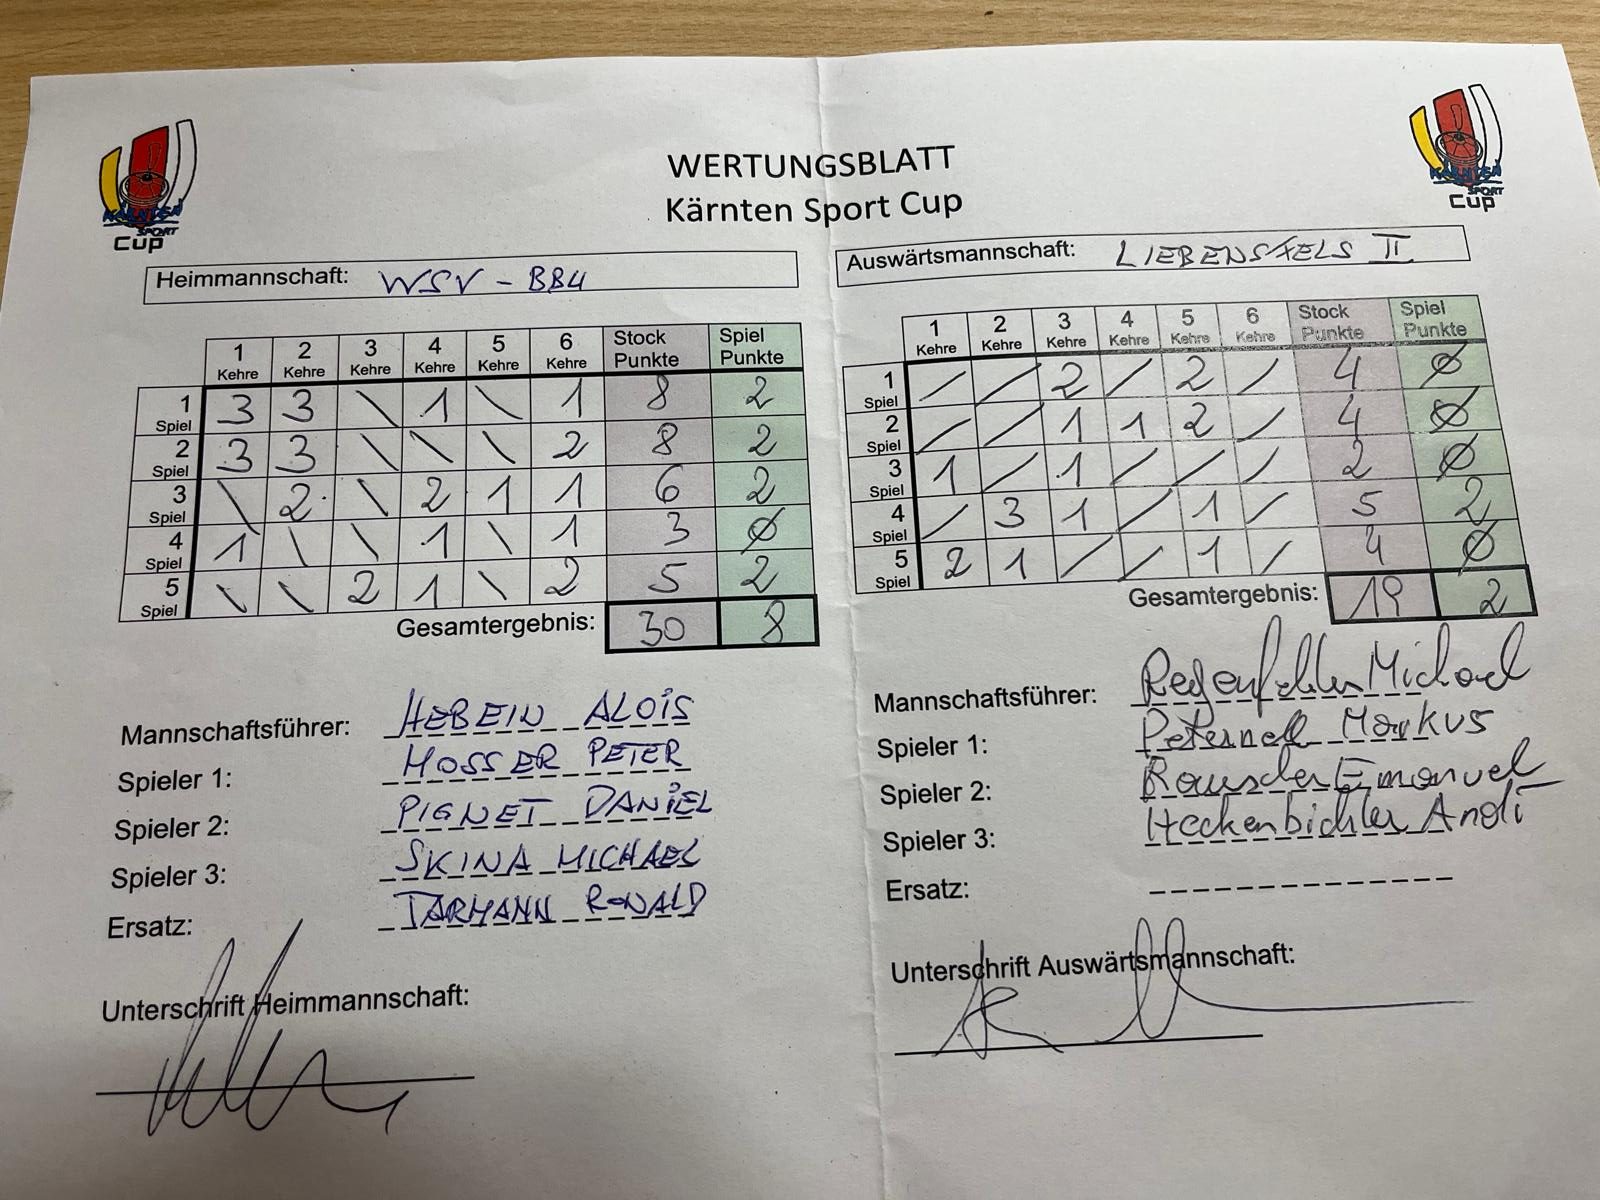 WERTUNGSBLATT
Kärnten Sport Cup
KÄRNTEN
SPORT
Cup
KÄRNTEN
SPORT
Cup
Heimmannschaft: WSV - BB4
1 Kehre 2 Kehre 3 Kehre 4 Kehre 5 Kehre 6 Kehre Stock Punkte Spiel Punkte
1 Spiel 3 3 \ 1 \ 1 8 2
2 Spiel 3 3 \ \ \ 2 8 2
3 Spiel \ 2 \ 2 1 1 6 2
4 Spiel 1 \ \ 1 \ 1 3 Ø
5 Spiel \ \ 2 1 \ 2 5 2
Gesamtergebnis: 30 8
Mannschaftsführer: HEBEIN ALOIS
Spieler 1: MOSSER PETER
Spieler 2: PIGNET DANIEL
Spieler 3: SKINA MICHAEL
Ersatz: TARMANN RONALD
Unterschrift Heimmannschaft:
Auswärtsmannschaft: LIEBENSFELS II
1 Kehre 2 Kehre 3 Kehre 4 Kehre 5 Kehre 6 Kehre Stock Punkte Spiel Punkte
1 Spiel / / 2 / 2 / 4 Ø
2 Spiel / / 1 1 2 / 4 Ø
3 Spiel 1 / 1 / / / 2 Ø
4 Spiel / 3 1 / 1 / 5 2
5 Spiel 2 1 / / 1 / 4 Ø
Gesamtergebnis: 19 2
Mannschaftsführer: Regenfelder Michael
Spieler 1: Peternell Markus
Spieler 2: Rauscher Emanuel
Spieler 3: Heckenbichler Andi
Ersatz:
Unterschrift Auswärtsmannschaft: